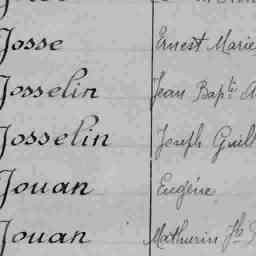 Josse Ernest Marie
Josselin Jean Bapte A
Josselin Joseph Guill
Jouan Eugène
Jouan Mathurin Jh